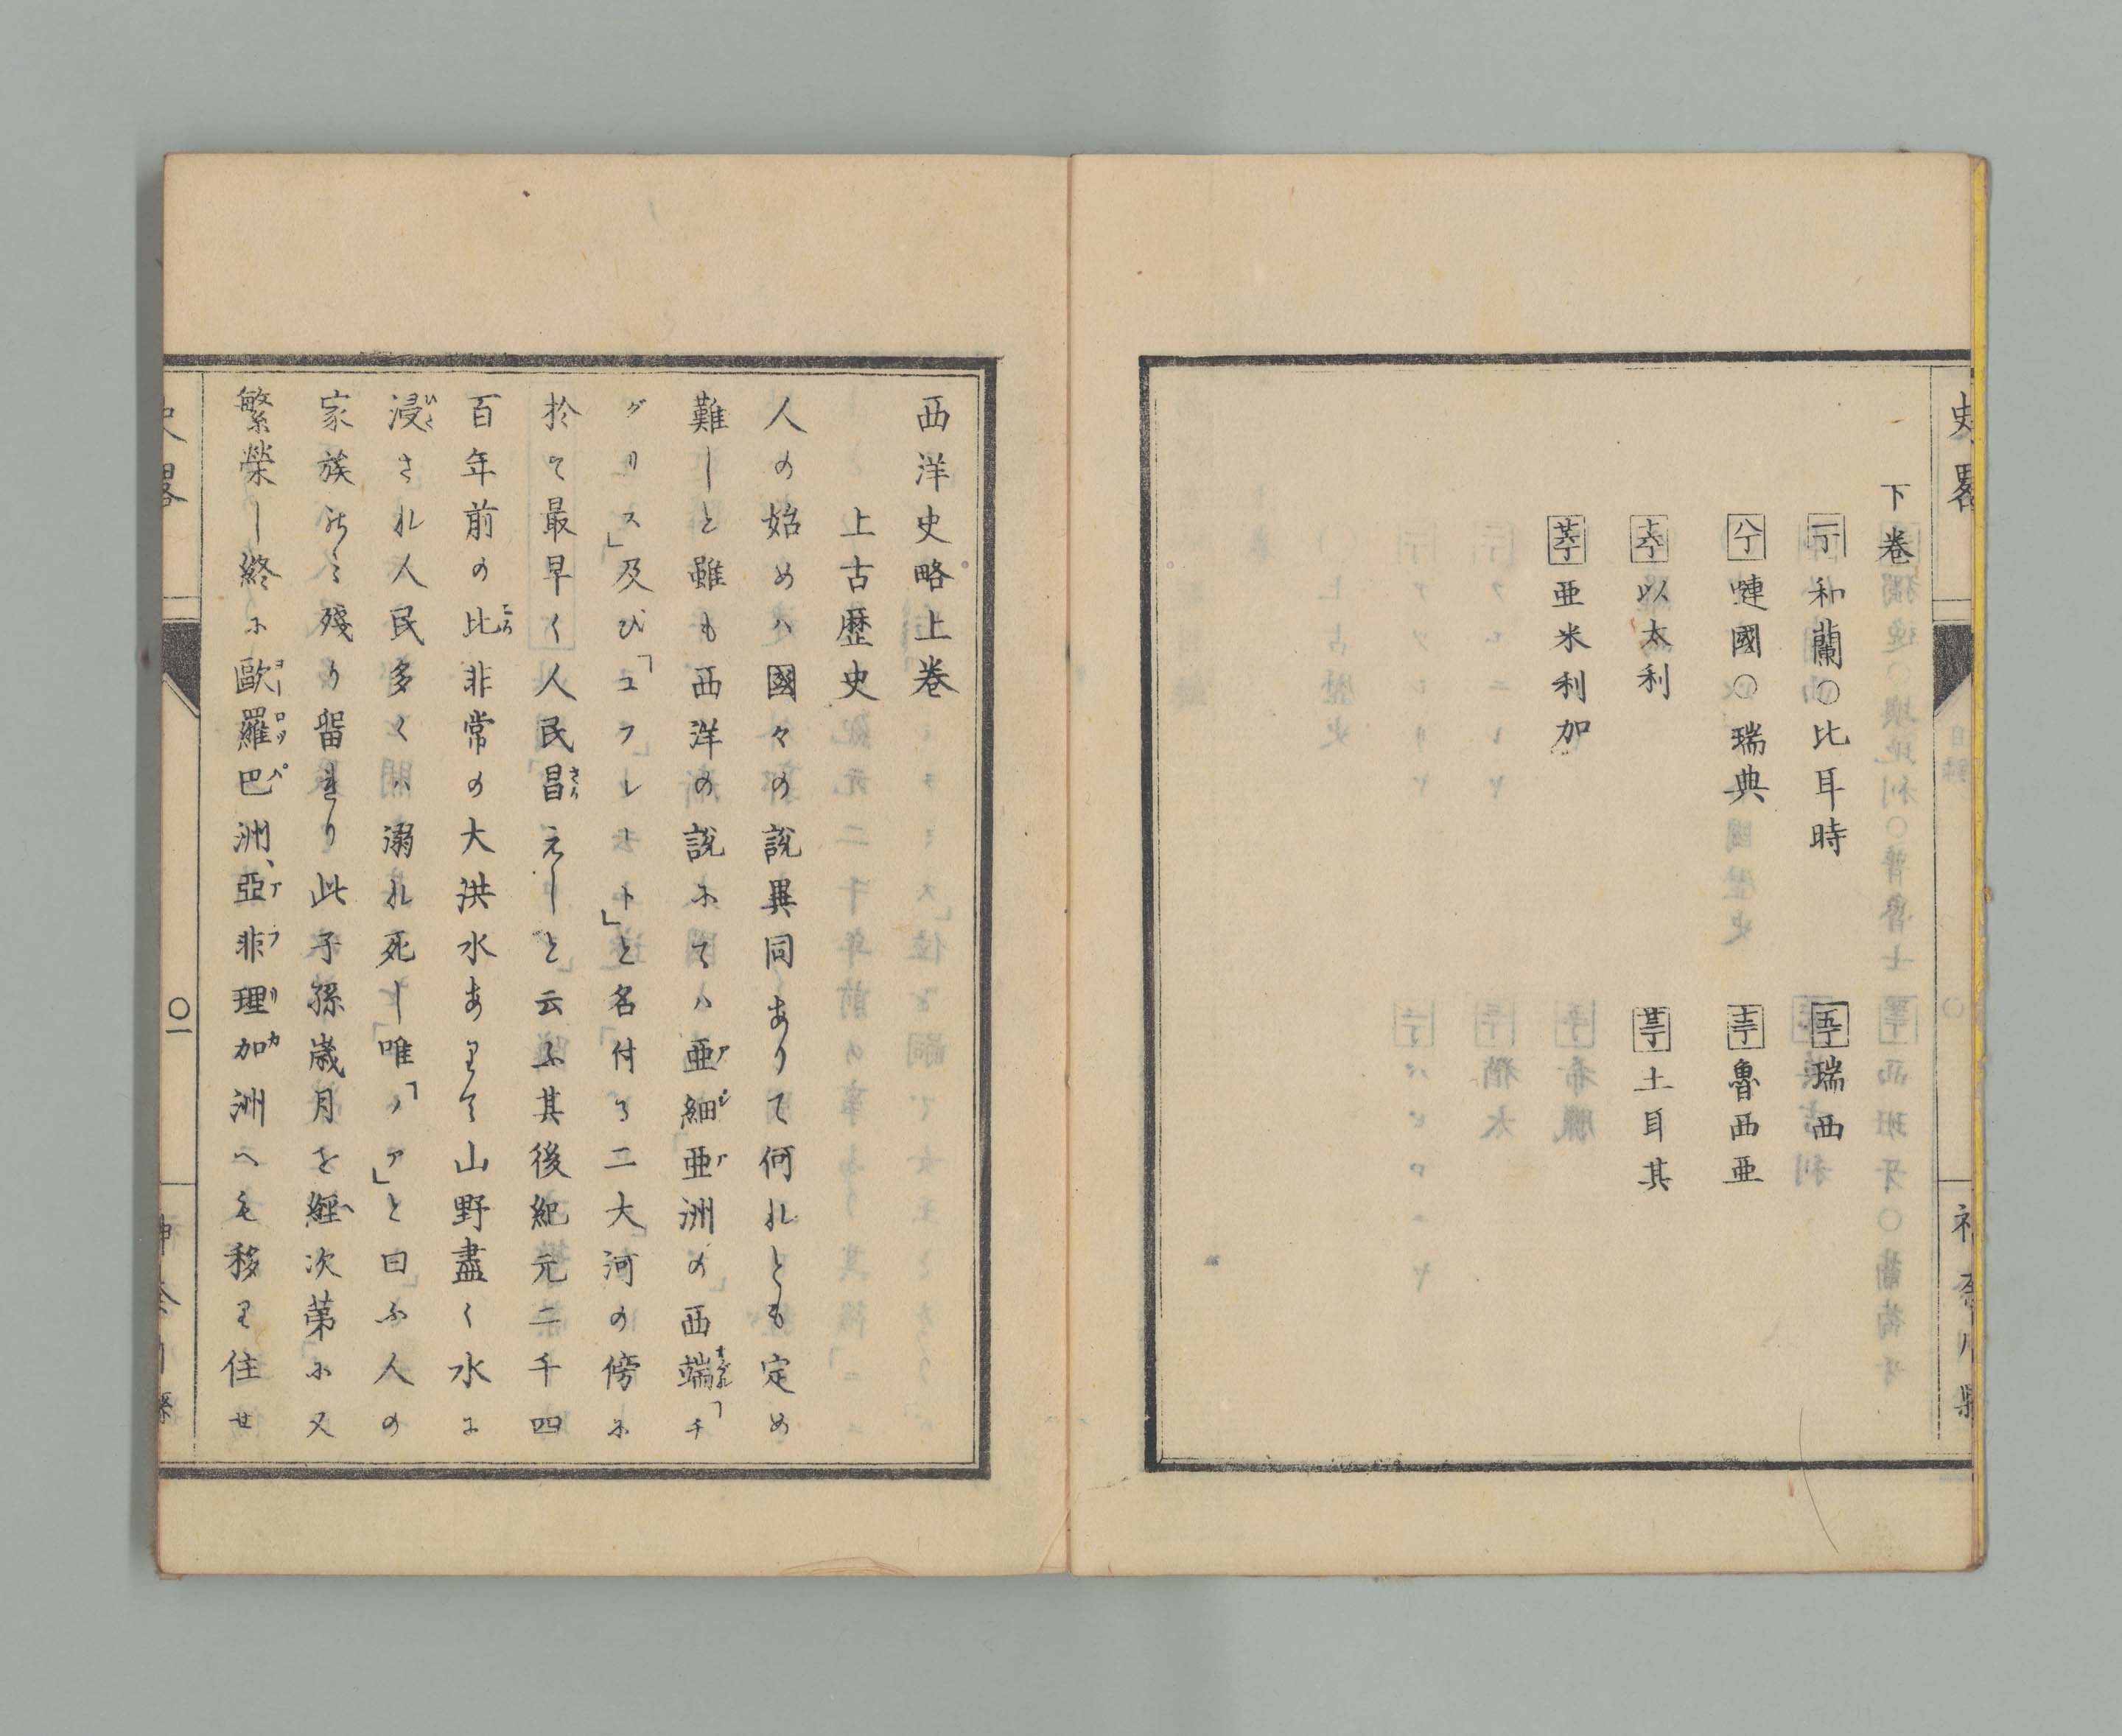 史畧
下卷
一丁 和蘭〇比耳時
五丁 瑞西
八丁 嗹國〇瑞典
魯西亜
以太利
土耳其
亜米利加
西洋史略上卷
上古歴史
人の始めハ國々の說異同ありて何れとも定め
難しと雖も西洋の說にてハ亜細亜洲の西端「チ
グリス」及び「ユフレート」と名付る二大河の傍に
於て最早く人民昌えしと云ふ其後紀元二千四
百年前の比非常の大洪水ありて山野盡く水に
浸され人民多くハ溺れ死し唯「ノア」と曰ふ人の
家族のミ殘り留まり此子孫歳月を經次第に又
繁榮し終に歐羅巴洲、亞非理加洲へも移り住せ
〇一